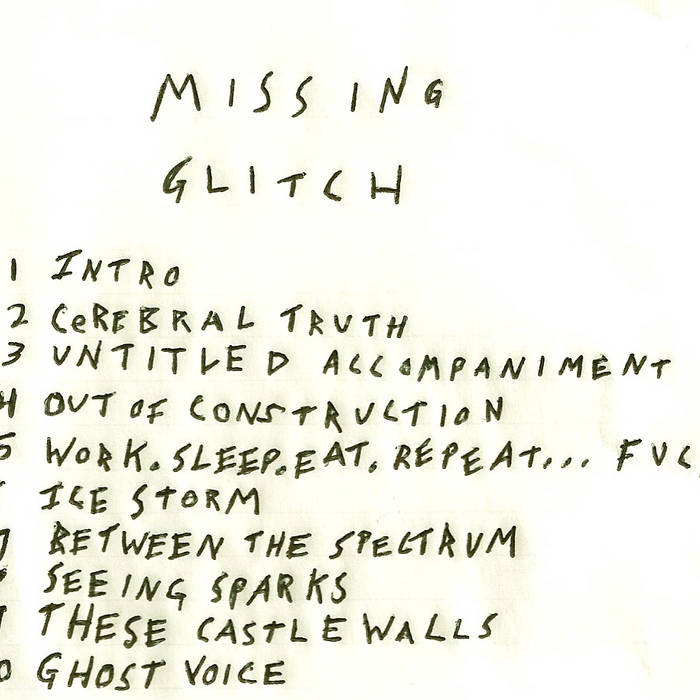 MISSING
GLITCH
1 INTRO
2 CeREBRAL TRUTH
3 UNTITLED ACCOMPANIMENT
4 OUT OF CONSTRUCTION
5 WORK.SLEEP.EAT.REPEAT... FUC
ICE STORM
7 BETWEEN THE SPECTRUM
SEEING SPARKS
THESE CASTLE WALLS
0 GHOST VOICE